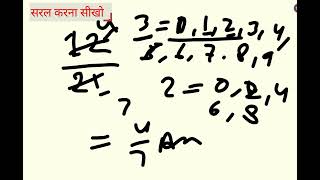 सरल करना सीखो
12 4
21 7
3 = 0, 1, 2, 3, 4,
5, 6, 7. 8, 9
2 = 0, 2, 4
6, 8
= 4/7 Ans